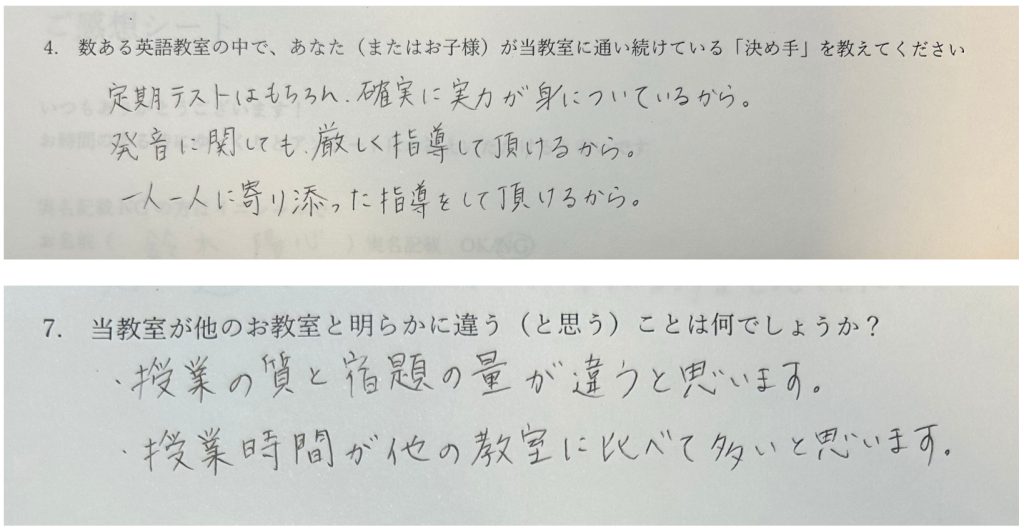 4. 数ある英語教室の中で、あなた（またはお子様）が当教室に通い続けている「決め手」を教えてください
定期テストはもちろん、確実に実力が身についているから。
発音に関しても、厳しく指導して頂けるから。
一人一人に寄り添った指導をして頂けるから。
7. 当教室が他のお教室と明らかに違う（と思う）ことは何でしょうか？
・授業の質と宿題の量が違うと思います。
・授業時間が他の教室に比べて多いと思います。